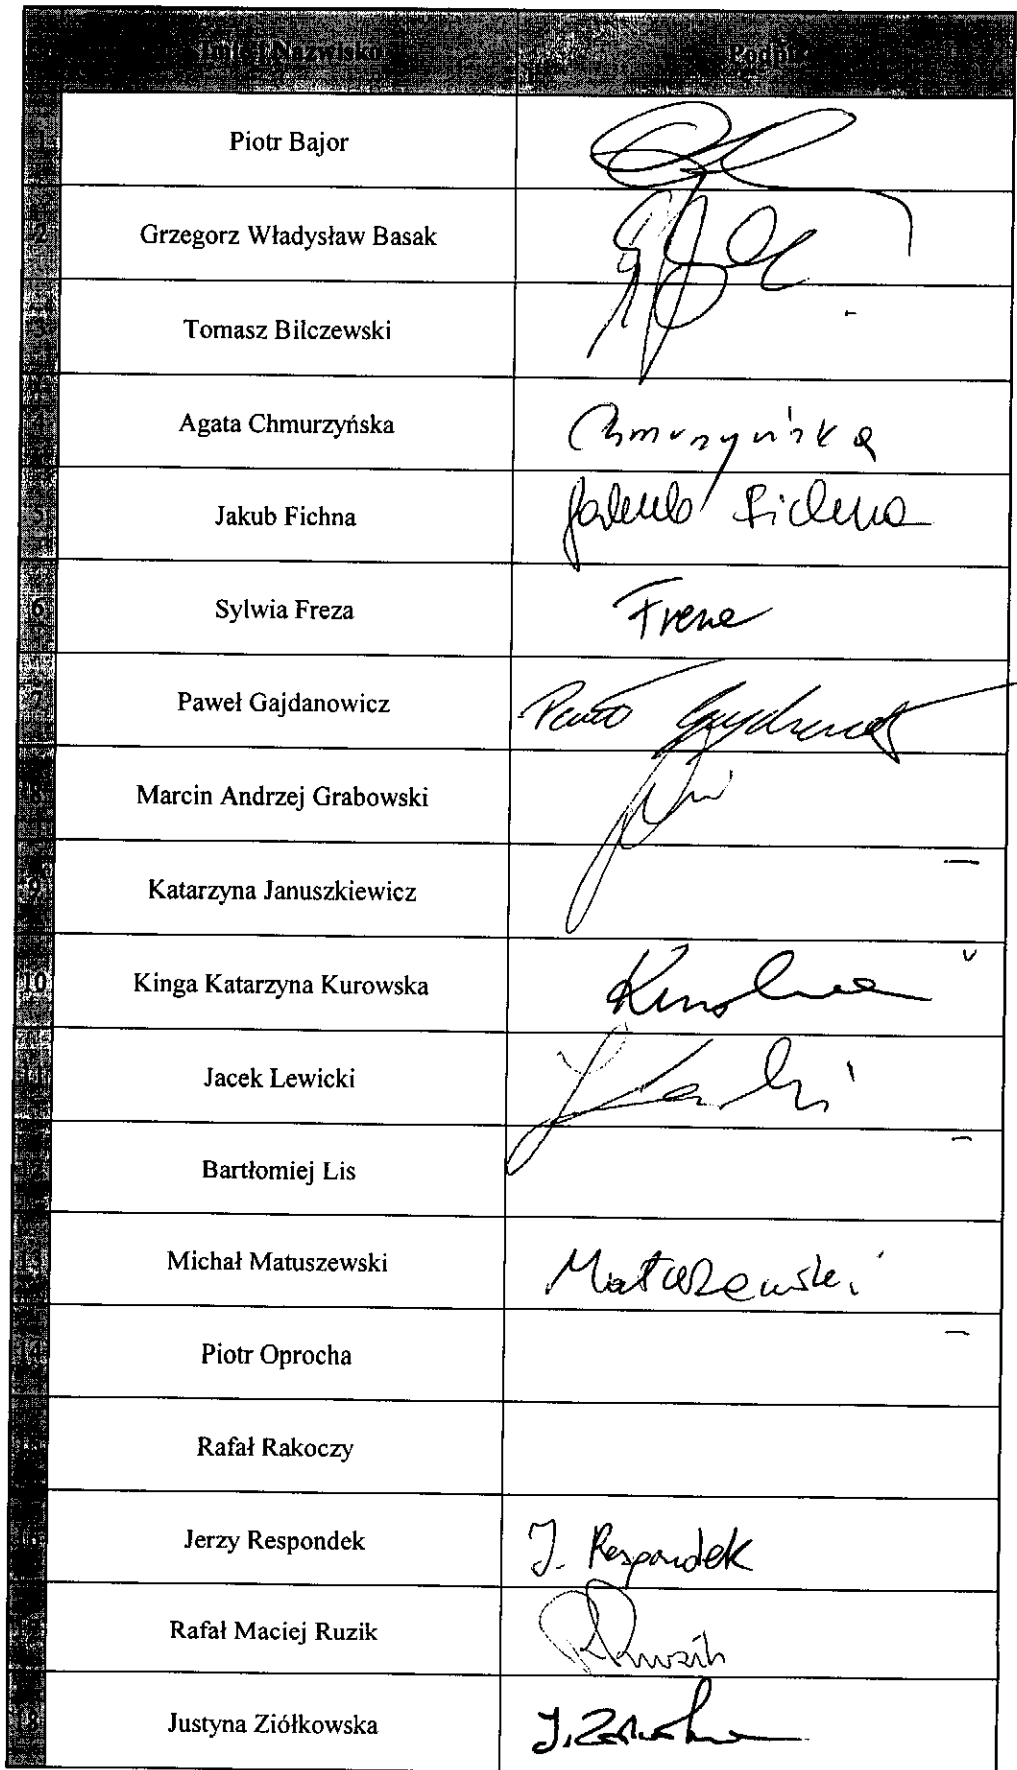 Imię i Nazwisko Podpis
1 Piotr Bajor
2 Grzegorz Władysław Basak
3 Tomasz Bilczewski -
4 Agata Chmurzyńska Chmurzyńska
5 Jakub Fichna Jakub Fichna
6 Sylwia Freza Freza
7 Paweł Gajdanowicz Paweł Gajdanowicz
8 Marcin Andrzej Grabowski
9 Katarzyna Januszkiewicz -
10 Kinga Katarzyna Kurowska
11 Jacek Lewicki
12 Bartłomiej Lis -
13 Michał Matuszewski Matuszewski
14 Piotr Oprocha -
Rafał Rakoczy
16 Jerzy Respondek J. Respondek
Rafał Maciej Ruzik R Ruzik
18 Justyna Ziółkowska